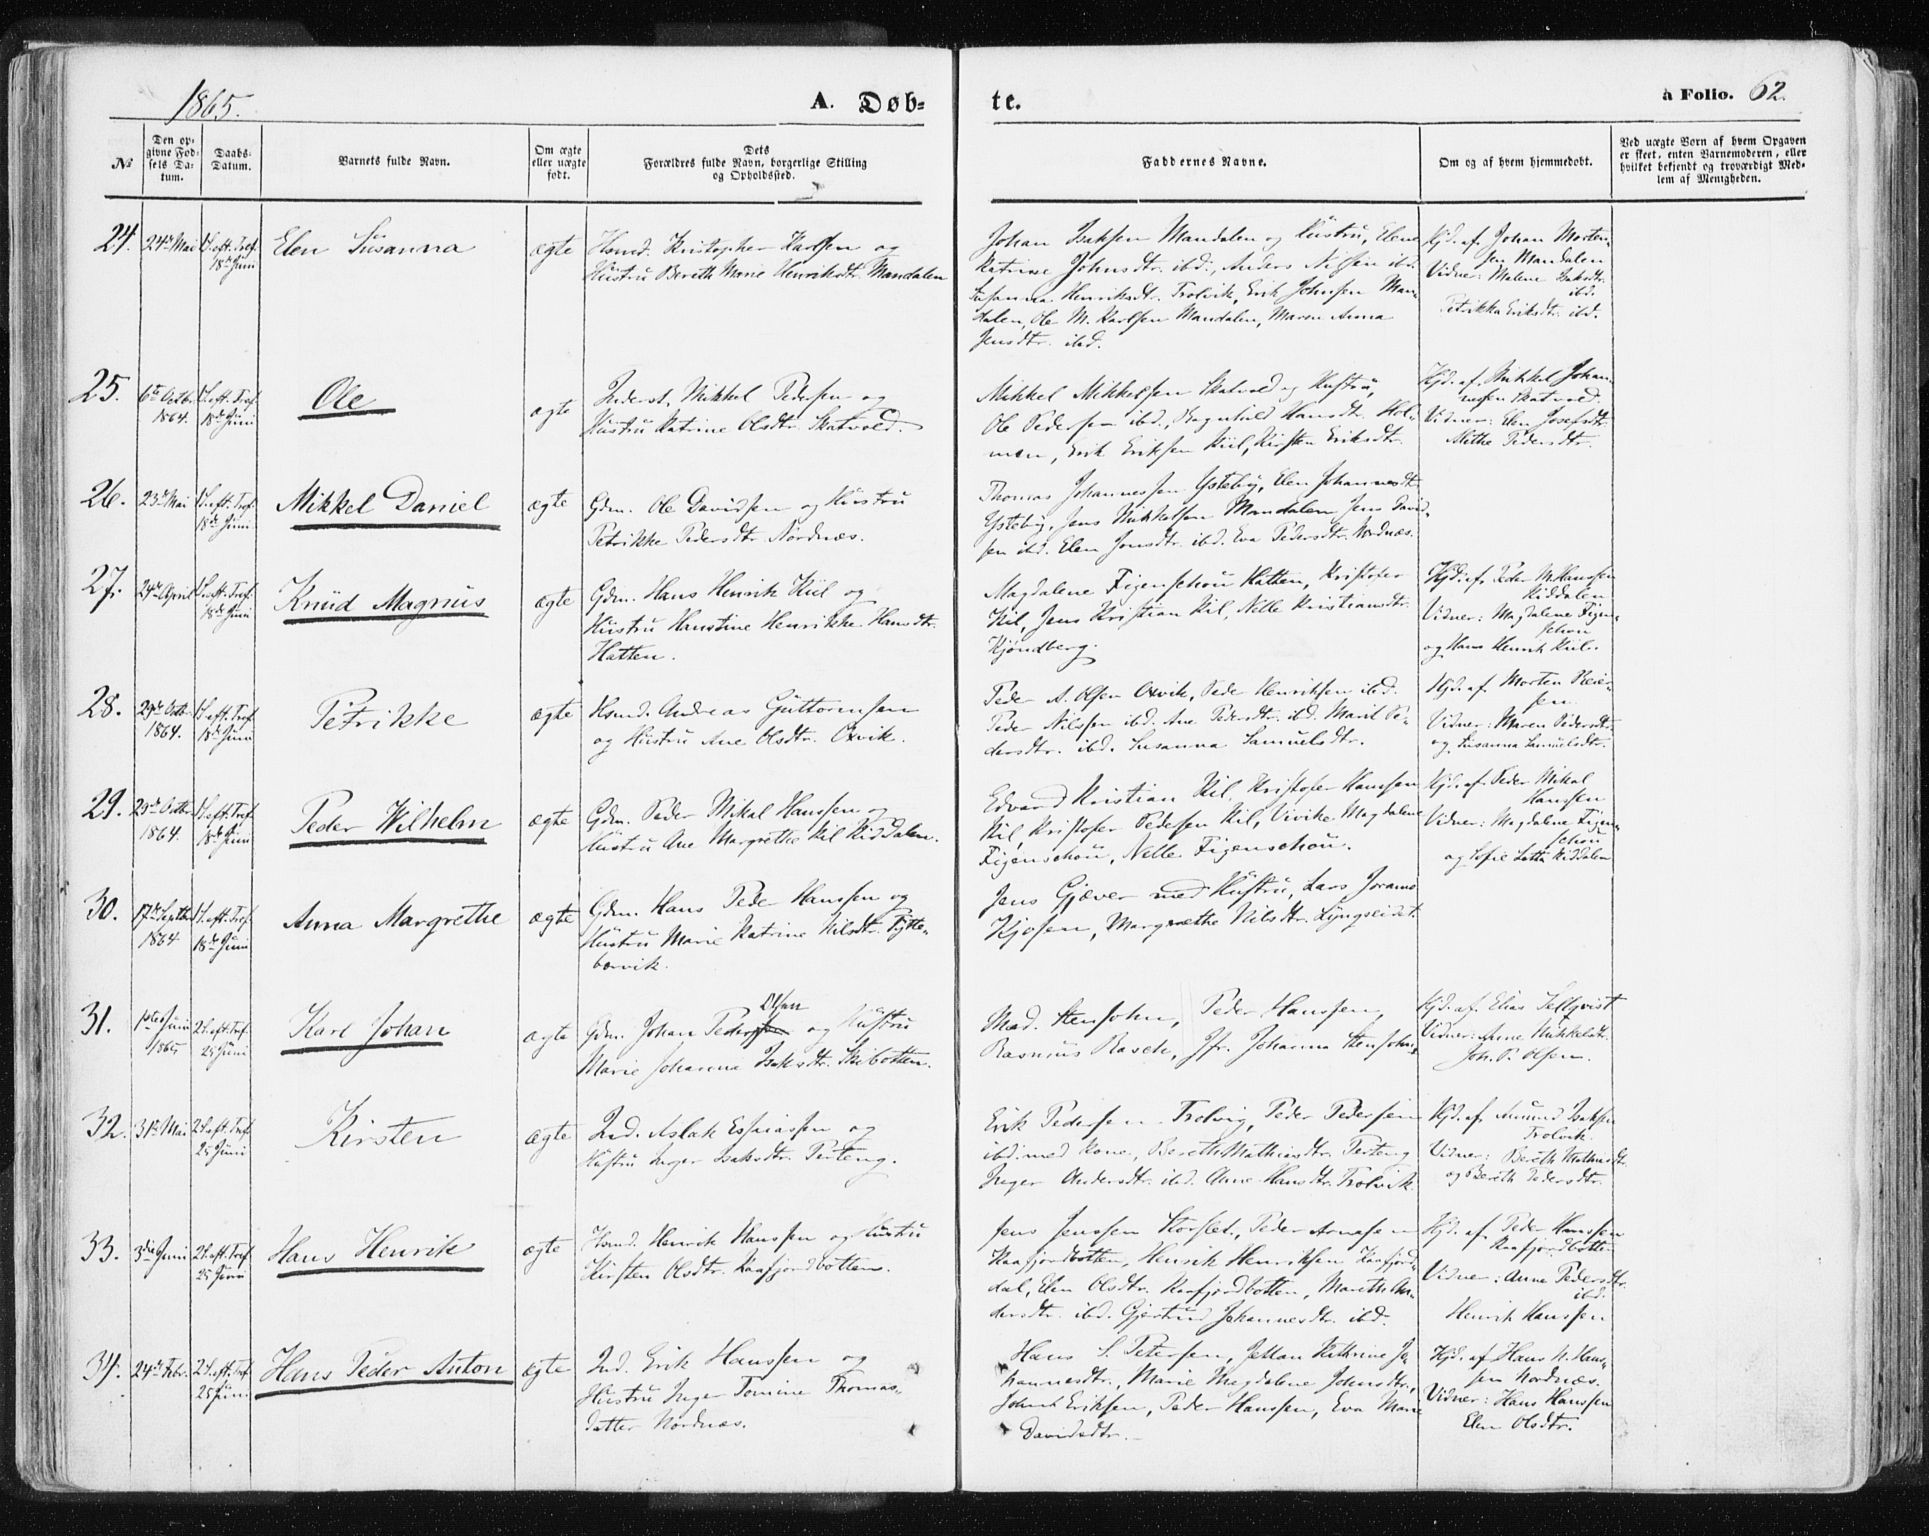 1865.
A. Døb-
te.
à Folio. 62.
№
Den op-
givne Fød-
sels Da-
tum.
Daabs-
Datum.
Barnets fulde Navn.
Om ægte
eller uægte
født.
Dets
Forældres fulde Navn, borgerlige Stilling
og Opholdssted.
Faddernes Navne.
Om og af hvem hjemmedøbt.
Ved uægte Børn af hvem Opgaven
er skeet, enten Barnemoderen, eller
hvilket bekjendt og troværdigt Med-
lem af Menigheden.
24.
24de Mai
1S. eft. Tref.
18de Juni
Elen Susanna
ægte
Husmd. Kristopher Karlsen og
Hustru Berith Marie Henriksdtr. Mandalen
Johan Isaksen Mandalen og Hustru, Elene
Katrine Johnsdtr. ibd., Anders Nilsen ibd.
Susanna Henriksdtr. Trolvik, Erik Johnsen Man-
dalen, Ole M. Karlsen Mandalen, Maren Anna
Jensdtr. ibd.
Hjd. af Johan Morten-
sen Mandalen
Vidner: Malene Isaksdtr.
ibd.
Petrikka Eriksdtr. ibd.
25.
6te Octb.
1864.
1S. eft. Tref.
18de Juni
Ole
ægte
Inderst. Mikkel Pedersen og
Hustru Katrine Olsdtr. Skatvold.
Mikkel Mikkelsen Skatvold og Hustru,
Ole Pedersen ibd., Ragnhild Hansdtr. Hol-
men, Erik Eriksen Kiil, Kirsten Eriksdtr.
Hjd. af Mikkel Johan-
nesen Skatvold.
Vidner: Elen Josefsdtr.
Mithe Pedersdtr.
26.
23de Mai
1S. eft. Tref.
18de Juni
Mikkel Daniel
ægte
Gdm. Ole Davidsen og Hustru
Petrikke Pedersdtr. Nordnæs.
Thomas Johannessen Ysteby, Elen Johannesdtr.
Ysteby, Jens Mikkelsen Mandalen Jens David-
sen ibd. Elen Jonsdtr. ibd. Eva Pedersdtr. Nordnæs.
27.
24de April
1S. eft. Tref.
18de Juni
Knud Magnus
ægte
Gdm. Hans Henrik Kiil og
Hustru Hanstine Henrikke Hansdtr.
Hatten.
Magdalene Figenschou Hatten, Kristofer
Kiil, Jens Kristian Kil, Nelle Kristiansdtr.
Kjøndberg.
Hjd. af Peder M. Hanssen
Kiddalen
Vidner: Magdalene Figen-
schou
og Hans Henrik Kiil.
28.
29de Octb.
1864.
1S. eft. Tref.
18de Juni
Petrikke
ægte
Husmd. Andreas Guttormsen
og Hustru Ane Olsdtr. Oxvik.
Peder A. Olsen Oxvik, Peder Henriksen ibd.
Peder Nilsen ibd. Ane Pedersdtr. ibd. Marit Pe-
dersdtr. ibd. Susanna Samuelsdtr.
Hjd. af Morten Peder-
sen.
Vidner: Maren Pedersdtr.
og Susanna Samuelsdtr.
29.
29de Octbr.
1864.
1S. eft. Tref.
18de Juni
Peder Wilhelm
ægte
Gdm. Peder Mikal Hanssen og
Hustru Ane Margrethe Kil Kiddalen.
Edvard Kristian Kil, Kristofer Hanssen
Kil, Kristofer Pedersen Kil, Vivike Magdalene
Figenschou, Nelle Figenschou.
Hjd. af Peder Mikal
Hanssen
Vidner: Magdalene Figen-
schou
og Sofie Lotta Kiddalen
30.
17de Septbr.
1864
1S. eft. Tref.
18de Juni
Anna Margrethe
ægte
Gdm. Hans Peder Hanssen og
Hustru Marie Katrine Nilsdtr. Pytte-
bærvik.
Jens Gjæver med Hustru, Lars Jørams
Kjosen, Margrethe Nilsdtr. Lyngseidet.
31.
1ste Juni
1865
2S. eft. Tref.
25 Juni
Karl Johan
ægte
Olsen
Gdm. Johan Pedersen og Hustru
Marie Johanna Isaksdtr. Skibotten.
Mad. Stensohn, Peder Hanssen,
Rasmus Rasch, Jfr. Johanna Stensohn,
Hjd. af Elias Sellqvist
Vidner: Anne Mikkelsdt.
Joh. P. Olsen.
32.
31te Mai
2S. eft. Tref.
25 Juni
Kirsten
ægte
Ind. Aslak Esaiassen og
Hustru Inger Isaksdtr. Perteng.
Erik Pedersen Trolvig, Peder Pedersen
ibd. med Kone, Berith Mathisdtr. Perteng
Inger Andersdtr. ibd. Anne Hansdtr. Trolvik.
Hjd. af Amund Isaksen
Trolvik.
Vidner: Berith Mathisdtr.
og Berith Pedersdtr.
33.
3die Juni
2S. eft. Tref.
25 Juni
Hans Henrik
ægte
Husmd. Henrik Hanssen og Hustru
Kirsten Olsdtr. Kaafjordbotten.
Jens Jenssen Storslet, Peder Arnesen
Kaafjordbotten, Henrik Henriksen Kaafjord-
dal, Elen Olsdtr. Kaafjordbotten, Marith An-
dersdtr. ibd. Gjertrud Johannesdtr. ibd.
Hjd. af Peder Hanssen
Kaafjordbotten
Vidner: Anne Pedersdtr.
ibd.
Henrik Hanssen
34.
24de Febr.
2S. eft. Tref.
25 Juni
Hans Peder Anton
ægte
Ind. Erik Hanssen og
Hustru Inger Tomine Thomas-
datter Nordnæs.
Hans S. Petersen, Kathrine Jo-
hannesdtr., Marie Magdalene Johnsdtr.,
Johan Eriksen, Peder Hanssen, Eva Marie
Davidsdtr.
Hjd. af Hans N. Hans-
sen Nordnæs.
Vidner: Hans Hanssen
Elen Olsdtr.